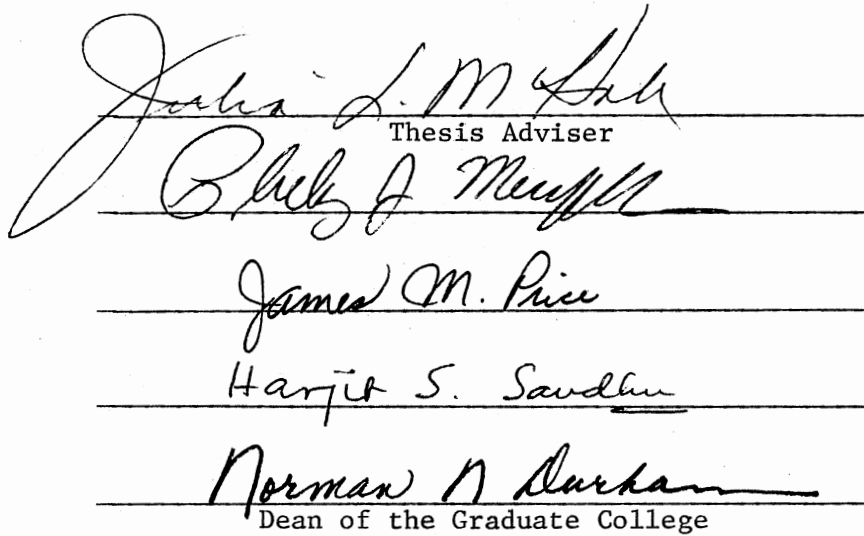 Julia L. M Hale
Thesis Adviser
J
James M. Price
Harjit S. Sandhu
Norman N Durham
Dean of the Graduate College